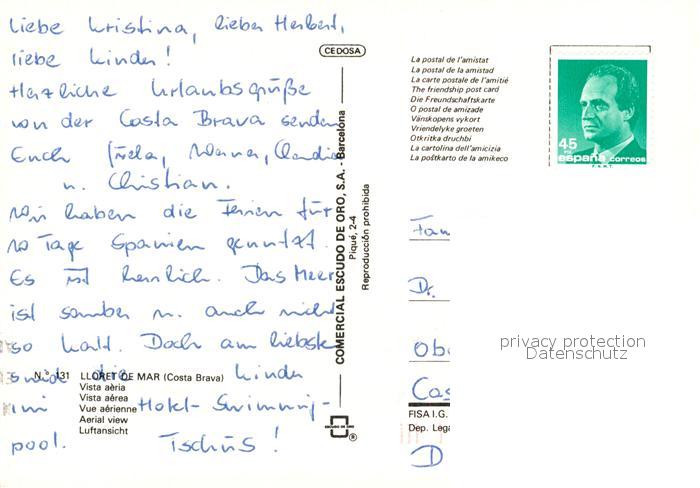 Liebe Kristina, lieber Herbert,
liebe Kinder!
Herzliche Urlaubsgrüße
von der Costa Brava senden
Euch Nana, Claudia
u. Christian.
Wir haben die Ferien für
10 Tage Spanien genutzt.
Es ist herrlich. Das Meer
ist sauber u. auch nicht
so kalt. Doch am liebsten
sind die Kinder
im Hotel-Swimming-
pool. Tschüs!
N.° 131 LLORET DE MAR (Costa Brava)
Vista aèria
Vista aérea
Vue aérienne
Aerial view
Luftansicht
CEDOSA
COMERCIAL ESCUDO DE ORO, S.A. - Barcelona
Piqué, 2-4
Reproducción prohibida
ESCUDO DE ORO
®
La postal de l'amistat
La postal de la amistad
La carte postale de l'amitié
The friendship post card
Die Freundschaftskarte
O postal de amizade
Vänskopens vykort
Vriendelyke groeten
Otkritka druchbi
La cartolina dell'amicizia
La poŝtkarto de la amikeco
45
PTA
españa correos
F.N.M.T.
Fam
Dr.
Obe
Cas
D
FISA I.G.
Dep. Lega
privacy protection
Datenschutz